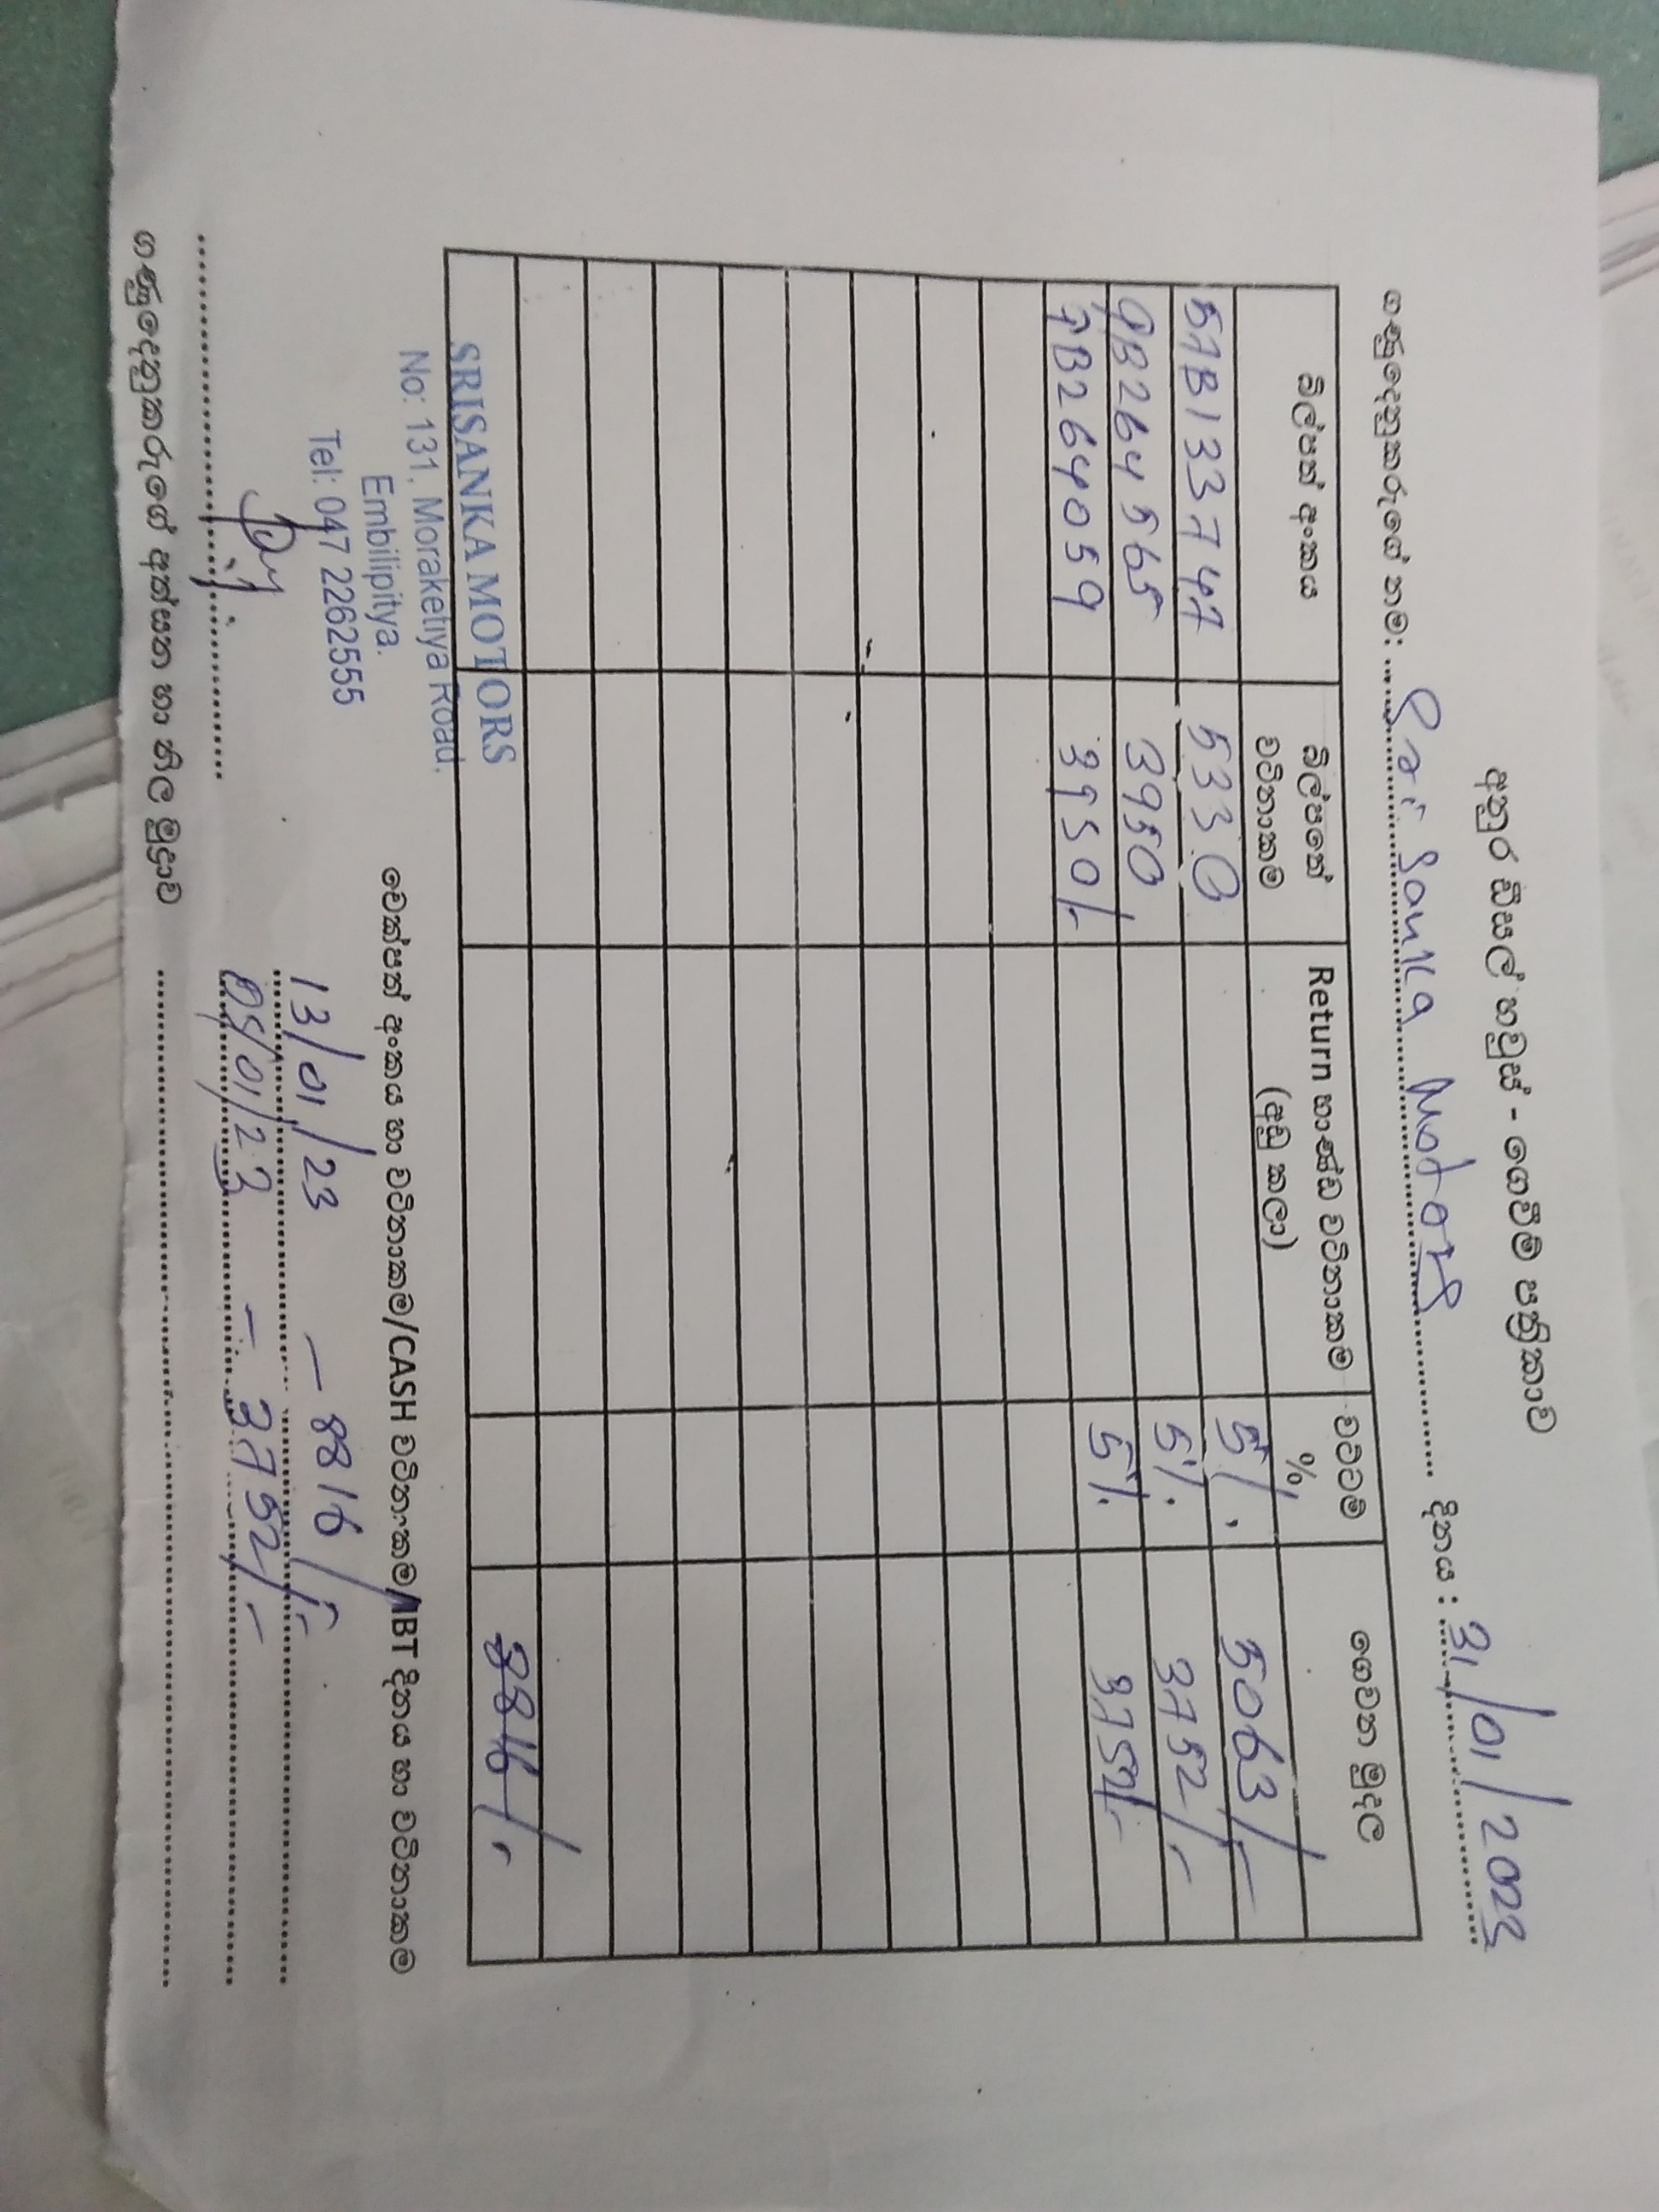 අනුර ඩීසල් හවුස් - ගෙවීම් පත්‍රිකාව
ගණුදෙනුකරුගේ නම: Sri Sanka Motors දිනය : 31/01/2023
බිල්පත් අංකය බිල්පතේ වටිනාකම Return භාණ්ඩ වටිනාකම (අඩු කලා) වට්ටම් % ගෙවන මුදල
5AB133747 5330 5%. 5063/-
QB264565 3950 5%. 3752/-
QB264059 3950/- 5%. 3752/-
8816/-
SRISANKA MOTORS
No: 131, Moraketiya Road,
Embilipitiya.
Tel: 047 2262555
චෙක්පත් අංකය හා වටිනාකම/CASH වටිනාකම/IBT දිනය හා වටිනාකම
13/01/23 - 8816/-
05/01/23 - 3752/-
ගණුදෙනුකරුගේ අත්සන හා නිල මුද්‍රාව